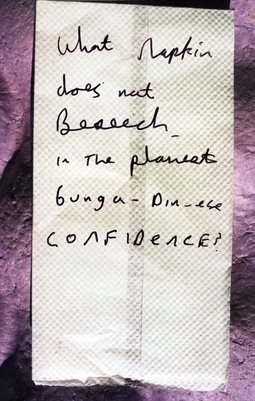 What Napkin
does not
Beseech_
in The planeats
Gunga-Din-ese
CONFIDENCE?